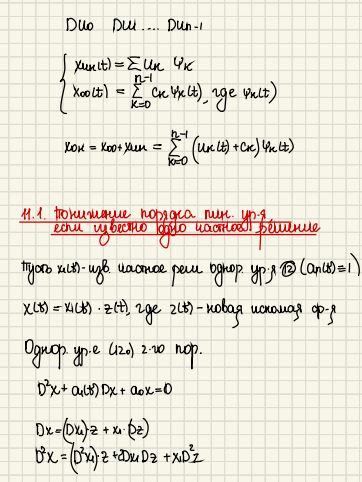 Du₀ Du₁ .... Duₙ₋₁
xчн(t) = ∑ uₖ φₖ
x₀₀(t) = ∑ₖ₌₀ⁿ⁻¹ cₖ φₖ(t), где φₖ(t)
xон = x₀₀ + xчн = ∑ₖ₌₀ⁿ⁻¹ (uₖ(t) + cₖ) φₖ(t)
11.1. Понижение порядка лин. ур-я,
если известно одно частное решение
Пусть x₁(t) - изв. частное реш однор. ур-я (12) (aₙ(t) ≡ 1)
x(t) = x₁(t) · z(t), где z(t) - новая искомая ф-я
Однор. ур-е (12₀) 2-го пор.
D²x + a₁(t) Dx + a₀x = 0
Dx = (Dx₁)·z + x₁·(Dz)
D²x = (D²x₁)·z + 2Dx₁Dz + x₁D²z